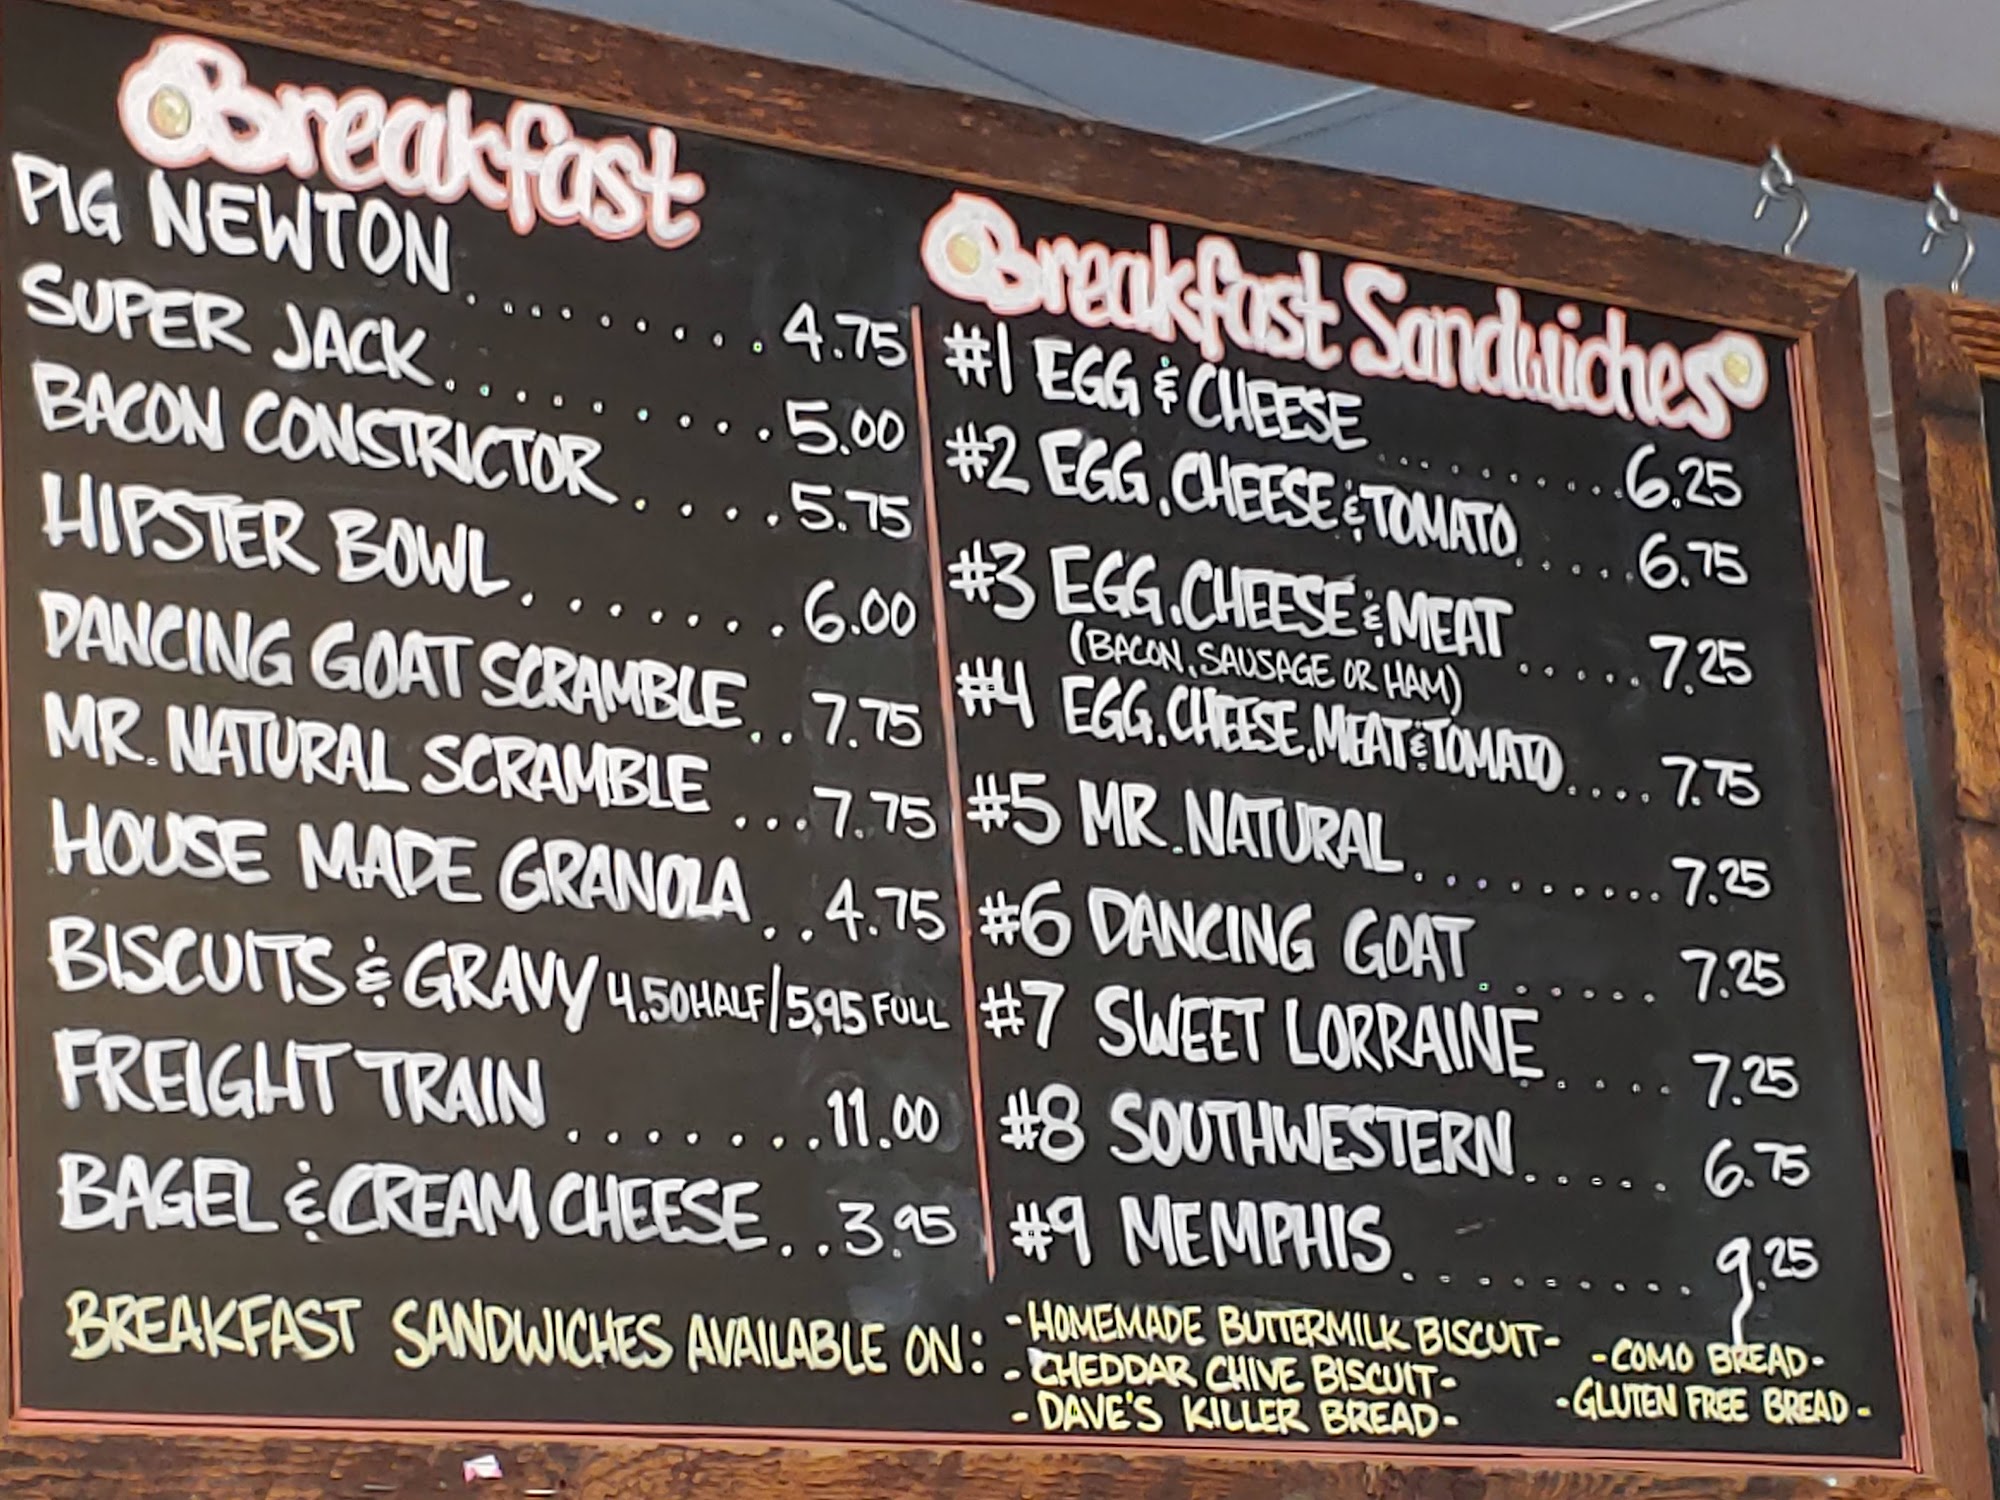 Breakfast
PIG NEWTON........4.75
SUPER JACK.........5.00
BACON CONSTRICTOR....5.75
HIPSTER BOWL.......6.00
DANCING GOAT SCRAMBLE..7.75
MR. NATURAL SCRAMBLE...7.75
HOUSE MADE GRANOLA..4.75
BISCUITS & GRAVY 4.50 HALF/5.95 FULL
FREIGHT TRAIN.......11.00
BAGEL & CREAM CHEESE..3.95
Breakfast Sandwiches
#1 EGG & CHEESE.........6.25
#2 EGG, CHEESE & TOMATO.....6.75
#3 EGG, CHEESE & MEAT.....7.25
(BACON, SAUSAGE OR HAM)
#4 EGG, CHEESE, MEAT & TOMATO....7.75
#5 MR. NATURAL.........7.25
#6 DANCING GOAT......7.25
#7 SWEET LORRAINE....7.25
#8 SOUTHWESTERN.....6.75
#9 MEMPHIS.........9.25
BREAKFAST SANDWICHES AVAILABLE ON:
-HOMEMADE BUTTERMILK BISCUIT-
-CHEDDAR CHIVE BISCUIT-
-DAVE'S KILLER BREAD-
-COMO BREAD-
-GLUTEN FREE BREAD-